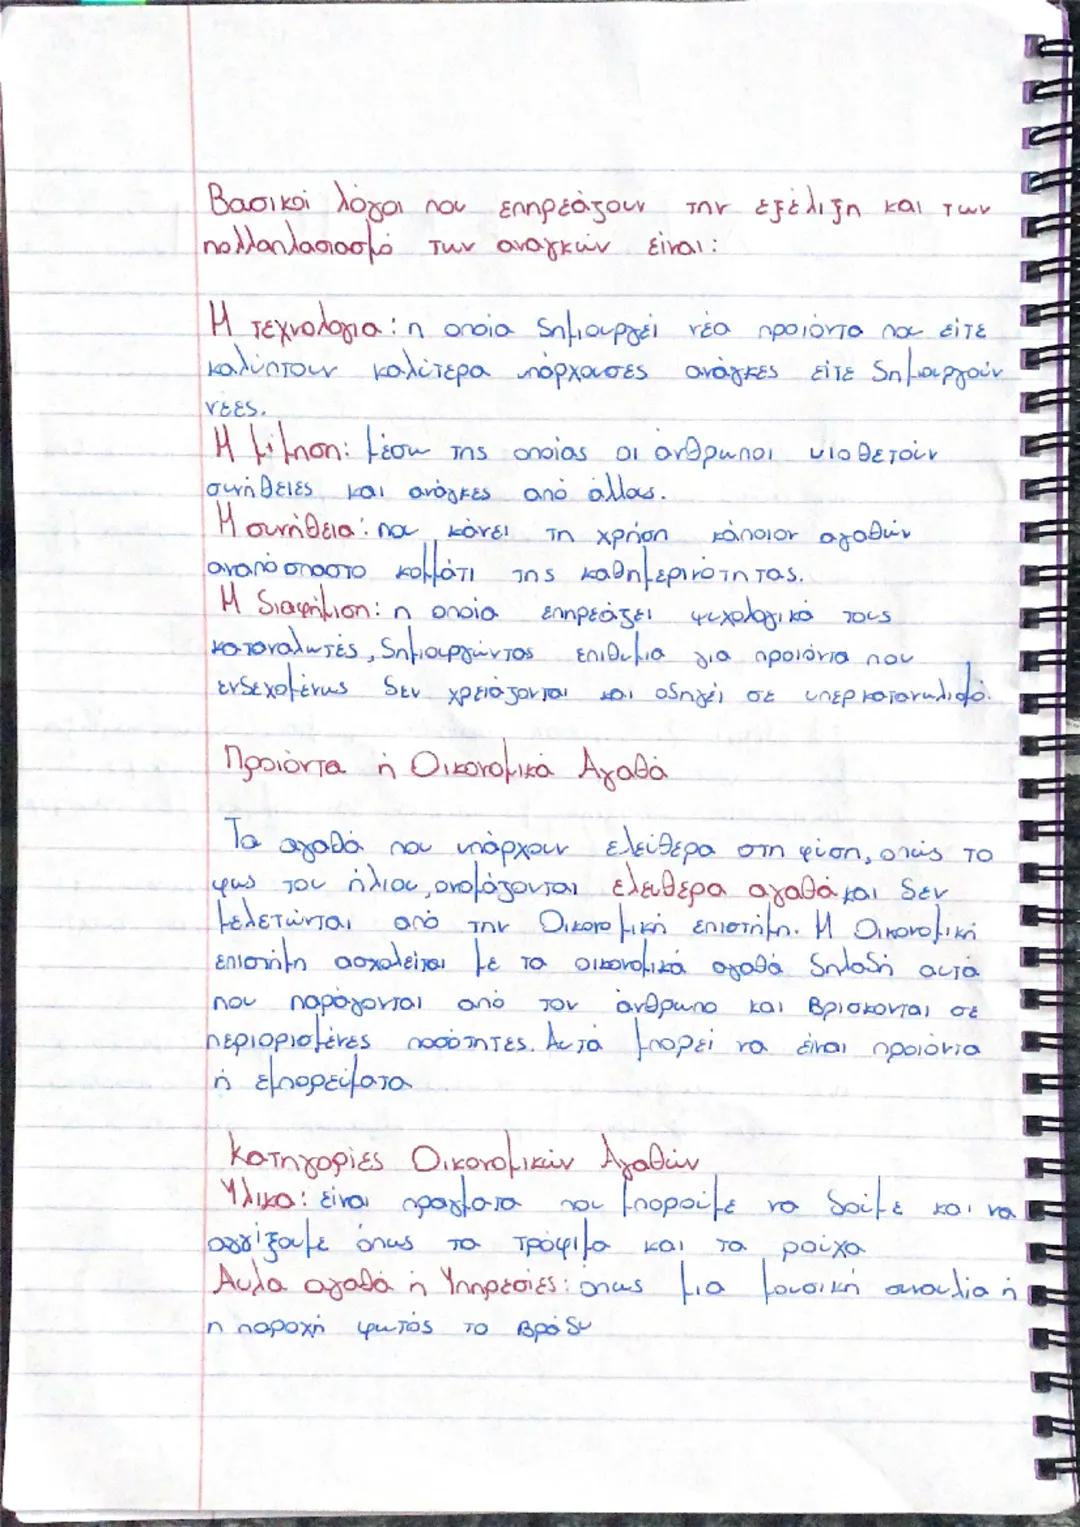 Βασικοί λόγοι που επηρεάζουν την εξέλιξη και των
πολλαπλασιασμό των αναγκών είναι:
Η τεχνολογια: η οποία δημιουργεί νέα προιόντα που είτε
καλύπτουν καλύτερα υπάρχουσες ανάγκες είτε δημιουργούν
νέες.
Η μίμηση: μέσω της οποίας οι άνθρωποι υιοθετούν
συνήθειες και ανάγκες από άλλους.
Η συνήθεια: που κάνει τη χρήση κάποιον αγαθών
αναπόσπαστο κομμάτι της καθημερινότητας.
Η διαφήμιση: η οποία επηρεάζει ψυχολογικά τους
καταναλωτές, δημιουργώντας επιθυμια για προιόντα που
ενδεχομένως δεν χρειάζονται και οδηγεί σε υπερκαταναλισμό.
Προιόντα ή Οικονομικά Αγαθά
Τα αγαθά που υπάρχουν ελεύθερα στη φύση, όπως το
φως του ήλιου, ονομάζονται ελευθερα αγαθά και δεν
μελετώνται από την Οικονομική επιστήμη. Η Οικονομική
επιστήμη ασχολείται με τα οικονομικά αγαθά δηλαδή αυτά
που παράγονται από τον άνθρωπο και βρισκονται σε
περιορισμένες ποσότητες. Αυτά μπορεί να είναι προιόντα
ή εμπορεύματα
Κατηγορίες Οικονομικών Αγαθών
Υλικα: είναι πραγματα που μπορούμε να δούμε και να
αγγίξουμε όπως τα τρόφιμα και τα ρούχα
Αυλα αγαθά ή Υπηρεσίες: όπως μια μουσική συναυλία ή
η παροχή φωτός το βράδυ